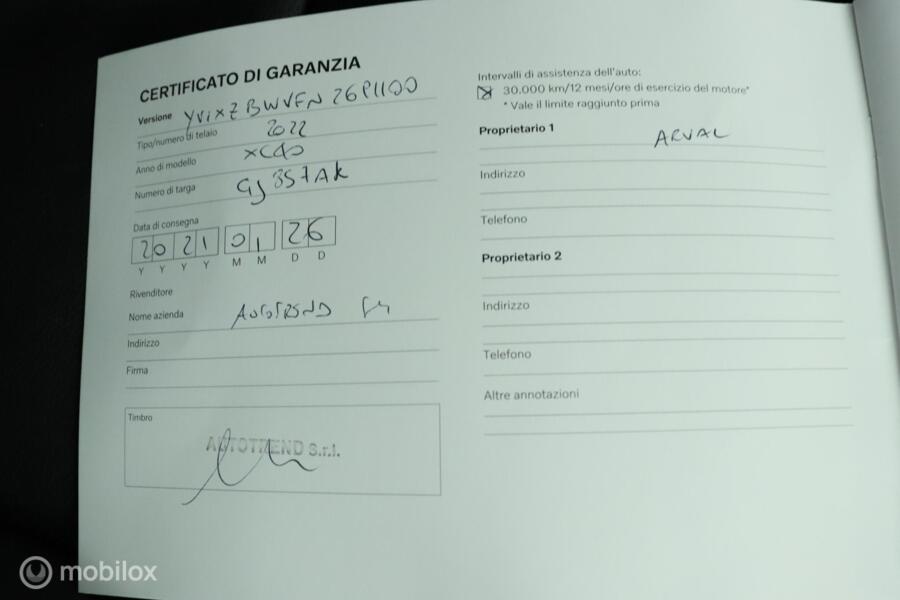 CERTIFICATO DI GARANZIA
Versione
Tipo/numero di telaio
2022
Anno di modello
XC40
Numero di targa
GJ357AK
Data di consegna
2021 01 26
Y Y Y Y M M D D
Rivenditore
Nome azienda AUTOTREND
Indirizzo
Firma
Timbro
AUTOTREND S.r.l.
Intervalli di assistenza dell'auto:
30.000 km/12 mesi/ore di esercizio del motore*
* Vale il limite raggiunto prima
Proprietario 1
ARVAL
Indirizzo
Telefono
Proprietario 2
Indirizzo
Telefono
Altre annotazioni
mobilox